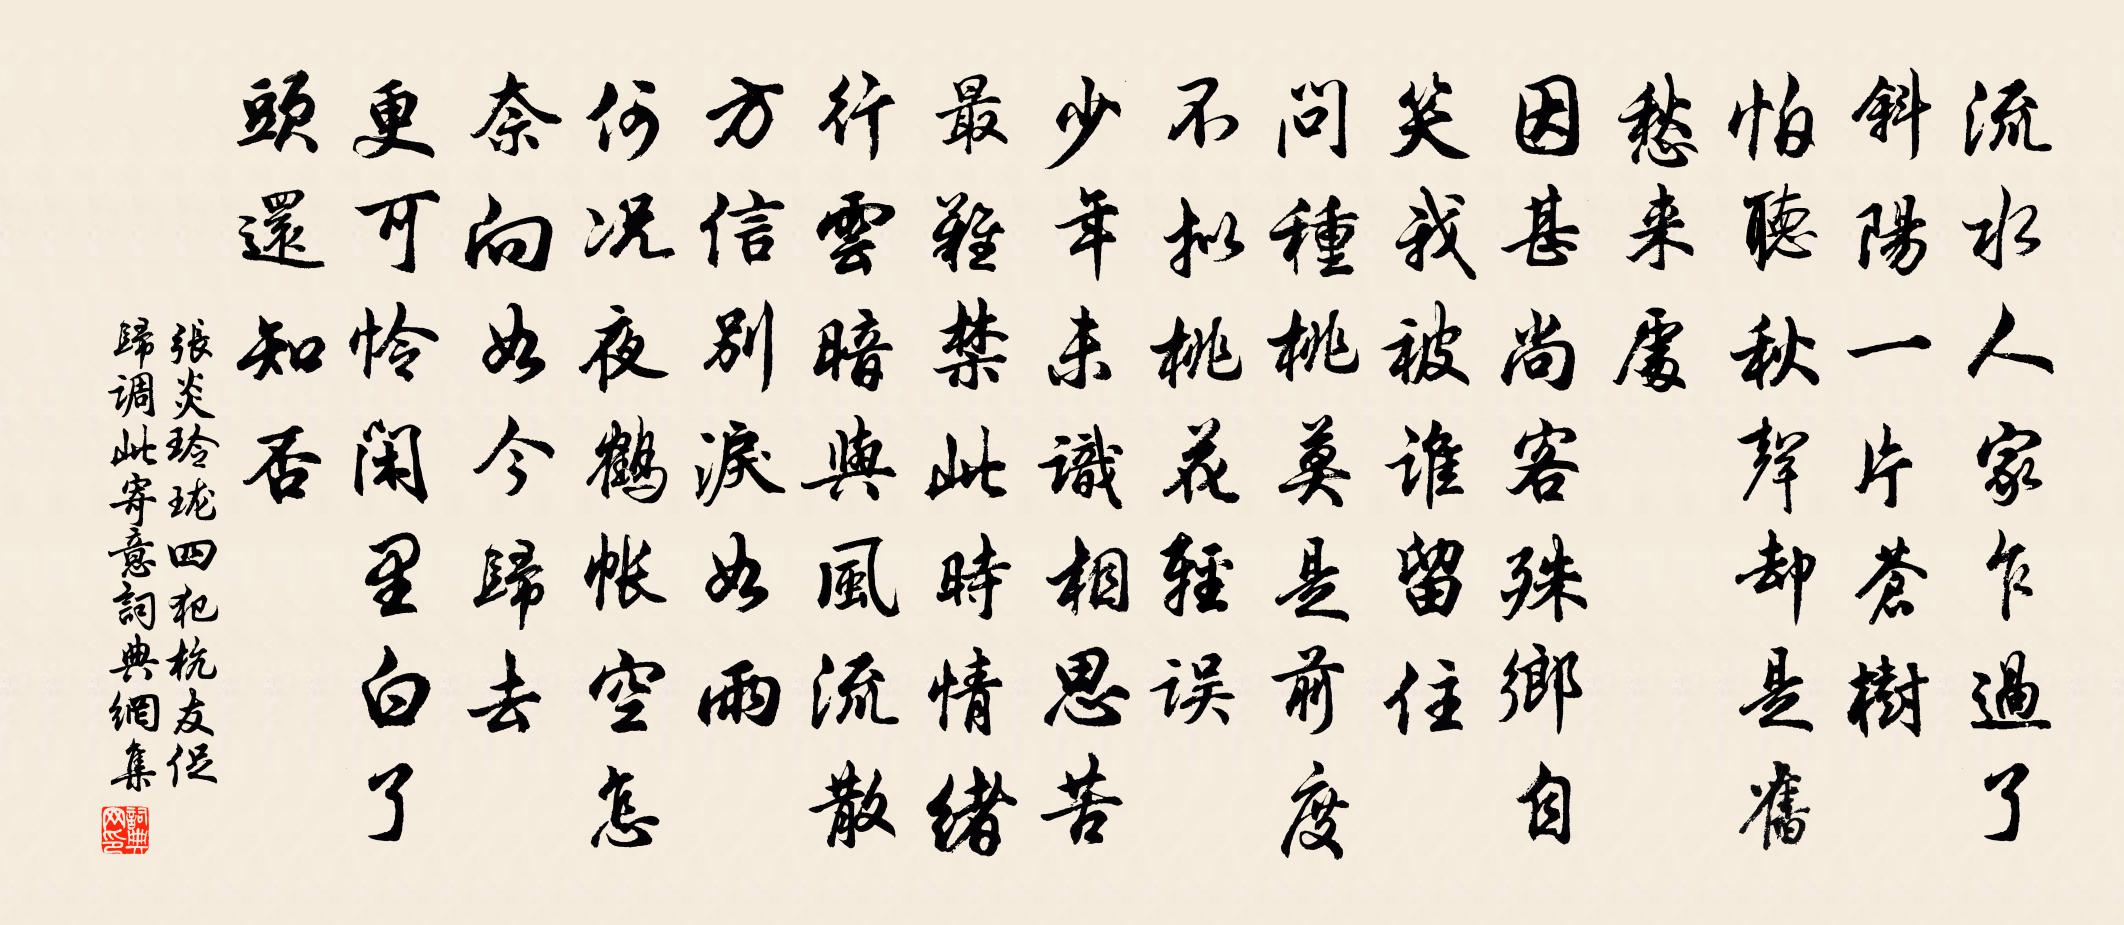 流水人家乍過了
斜陽一片蒼樹
怕聽秋聲却是舊
愁来處
因甚尚客殊鄉自
笑我被谁留住
問種桃莫是前度
不拟桃花輕误
少年未識相思苦
最難禁此時情緒
行雲暗與風流散
方信别淚如雨
何况夜鶴帐空怎
奈向如今歸去
更可怜闲里白了
頭還知否
張炎玲珑四犯杭友促
歸调此寄意詞典網集
詞典
网印